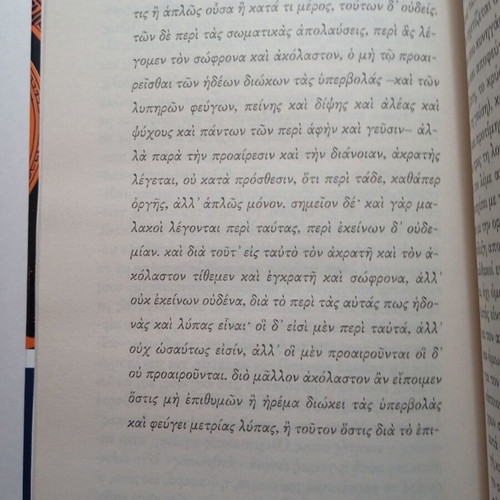 τις ἢ ἁπλῶς οὖσα ἢ κατά τι μέρος, τούτων δ' οὐδείς.
τῶν δὲ περὶ τὰς σωματικὰς ἀπολαύσεις, περὶ ἃς λέ-
γομεν τὸν σώφρονα καὶ ἀκόλαστον, ὁ μὴ τῷ προαι-
ρεῖσθαι τῶν ἡδέων διώκων τὰς ὑπερβολὰς –καὶ τῶν
λυπηρῶν φεύγων, πείνης καὶ δίψης καὶ ἀλέας καὶ
ψύχους καὶ πάντων τῶν περὶ ἁφὴν καὶ γεῦσιν– ἀλ-
λὰ παρὰ τὴν προαίρεσιν καὶ τὴν διάνοιαν, ἀκρατὴς
λέγεται, οὐ κατὰ πρόσθεσιν, ὅτι περὶ τάδε, καθάπερ
ὀργῆς, ἀλλ' ἁπλῶς μόνον. σημεῖον δέ· καὶ γὰρ μα-
λακοὶ λέγονται περὶ ταύτας, περὶ ἐκείνων δ' οὐδε-
μίαν. καὶ διὰ τοῦτ' εἰς ταὐτὸ τὸν ἀκρατῆ καὶ τὸν ἀ-
κόλαστον τίθεμεν καὶ ἐγκρατῆ καὶ σώφρονα, ἀλλ'
οὐκ ἐκείνων οὐδένα, διὰ τὸ περὶ τὰς αὐτάς πως ἡδο-
νὰς καὶ λύπας εἶναι· οἳ δ' εἰσὶ μὲν περὶ ταὐτά, ἀλλ'
οὐχ ὡσαύτως εἰσίν, ἀλλ' οἳ μὲν προαιροῦνται οἳ δ'
οὐ προαιροῦνται. διὸ μᾶλλον ἀκόλαστον ἂν εἴποιμεν
ὅστις μὴ ἐπιθυμῶν ἢ ἠρέμα διώκει τὰς ὑπερβολὰς
καὶ φεύγει μετρίας λύπας, ἢ τοῦτον ὅστις διὰ τὸ ἐπι-